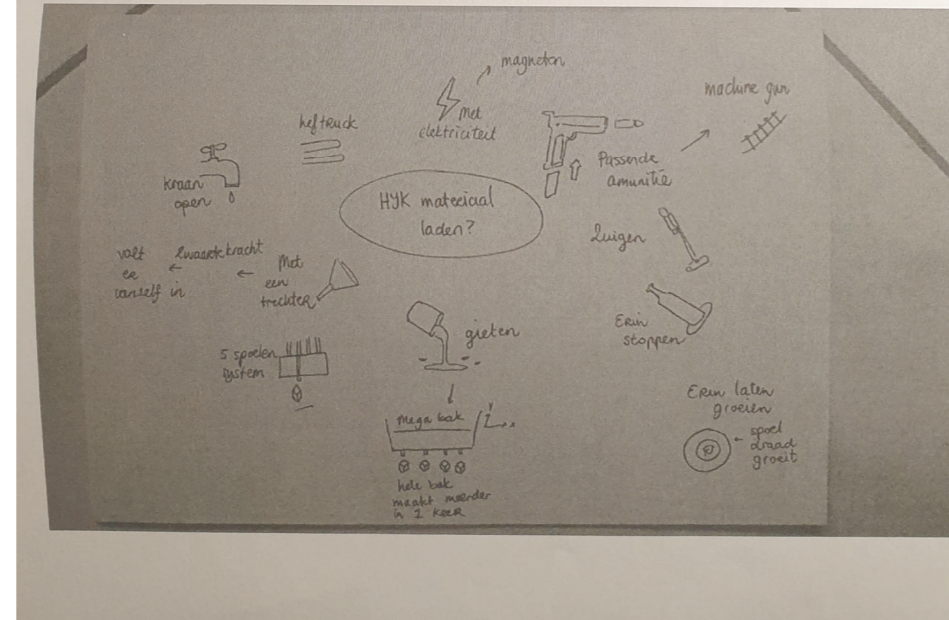 magneten
Met
elektriciteit
heftruck
machine gun
Passende
amunitie
kraan
open
HYK materiaal
laden?
Zuigen
valt
er
vanzelf in
Zwaartekracht
Met
een
trechter
Erin
stoppen
gieten
5 spoelen
system
Erin laten
groeien
spoel
draad
groeit
Mega bak
hele bak
maakt meerder
in 1 keer